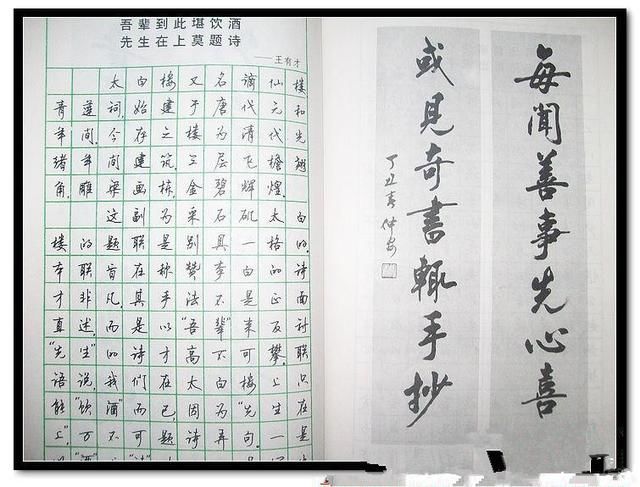 吾辈到此堪饮酒
先生在上莫题诗
——王有才
太白楼又名谪仙楼
青莲祠,始建于唐代元和
年间,今存之楼为清代光
绪年间建筑,三层飞檐翘
角,雕梁画栋,金碧辉煌.
这副为采石矶太白
楼的题联是别具一格的.
本联旨在称赞李白的诗
才非凡,其手法不是正面
直述,而是以"吾辈"来反衬
"先生"的诗才高不可攀.联
语说,我们在太白楼上只
能"饮酒"而已,因为"先生在
上",万不可题诗弄句.一是
每聞善事先心喜
或見奇書輒手抄
丁丑春